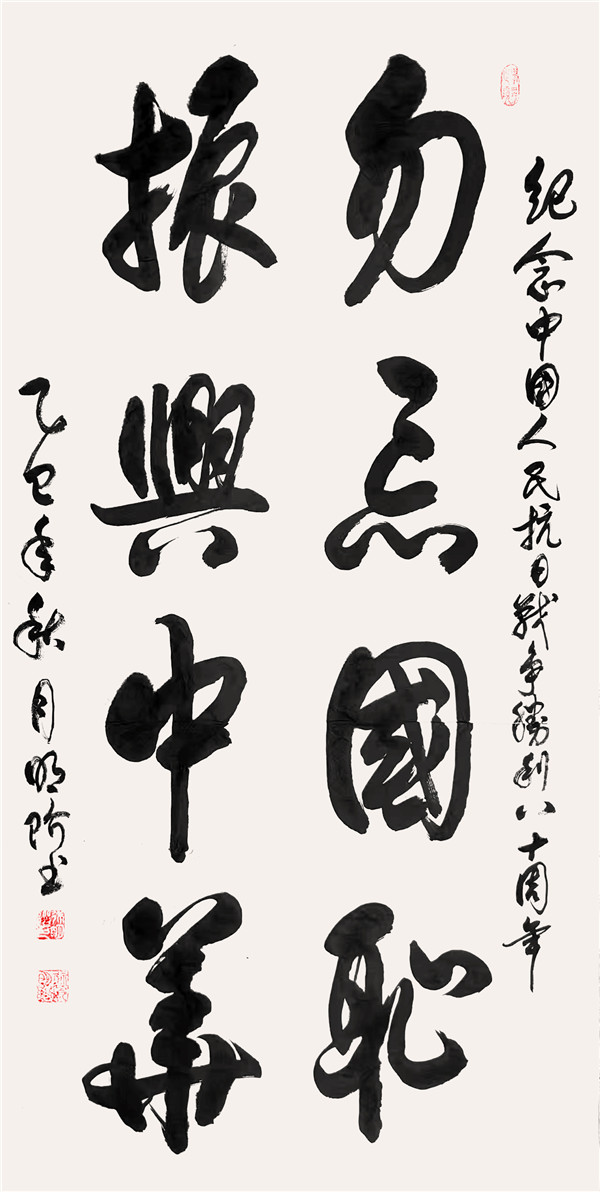 紀念中國人民抗日戰爭勝利八十周年
勿忘國恥
振興中華
乙巳年秋月明階書